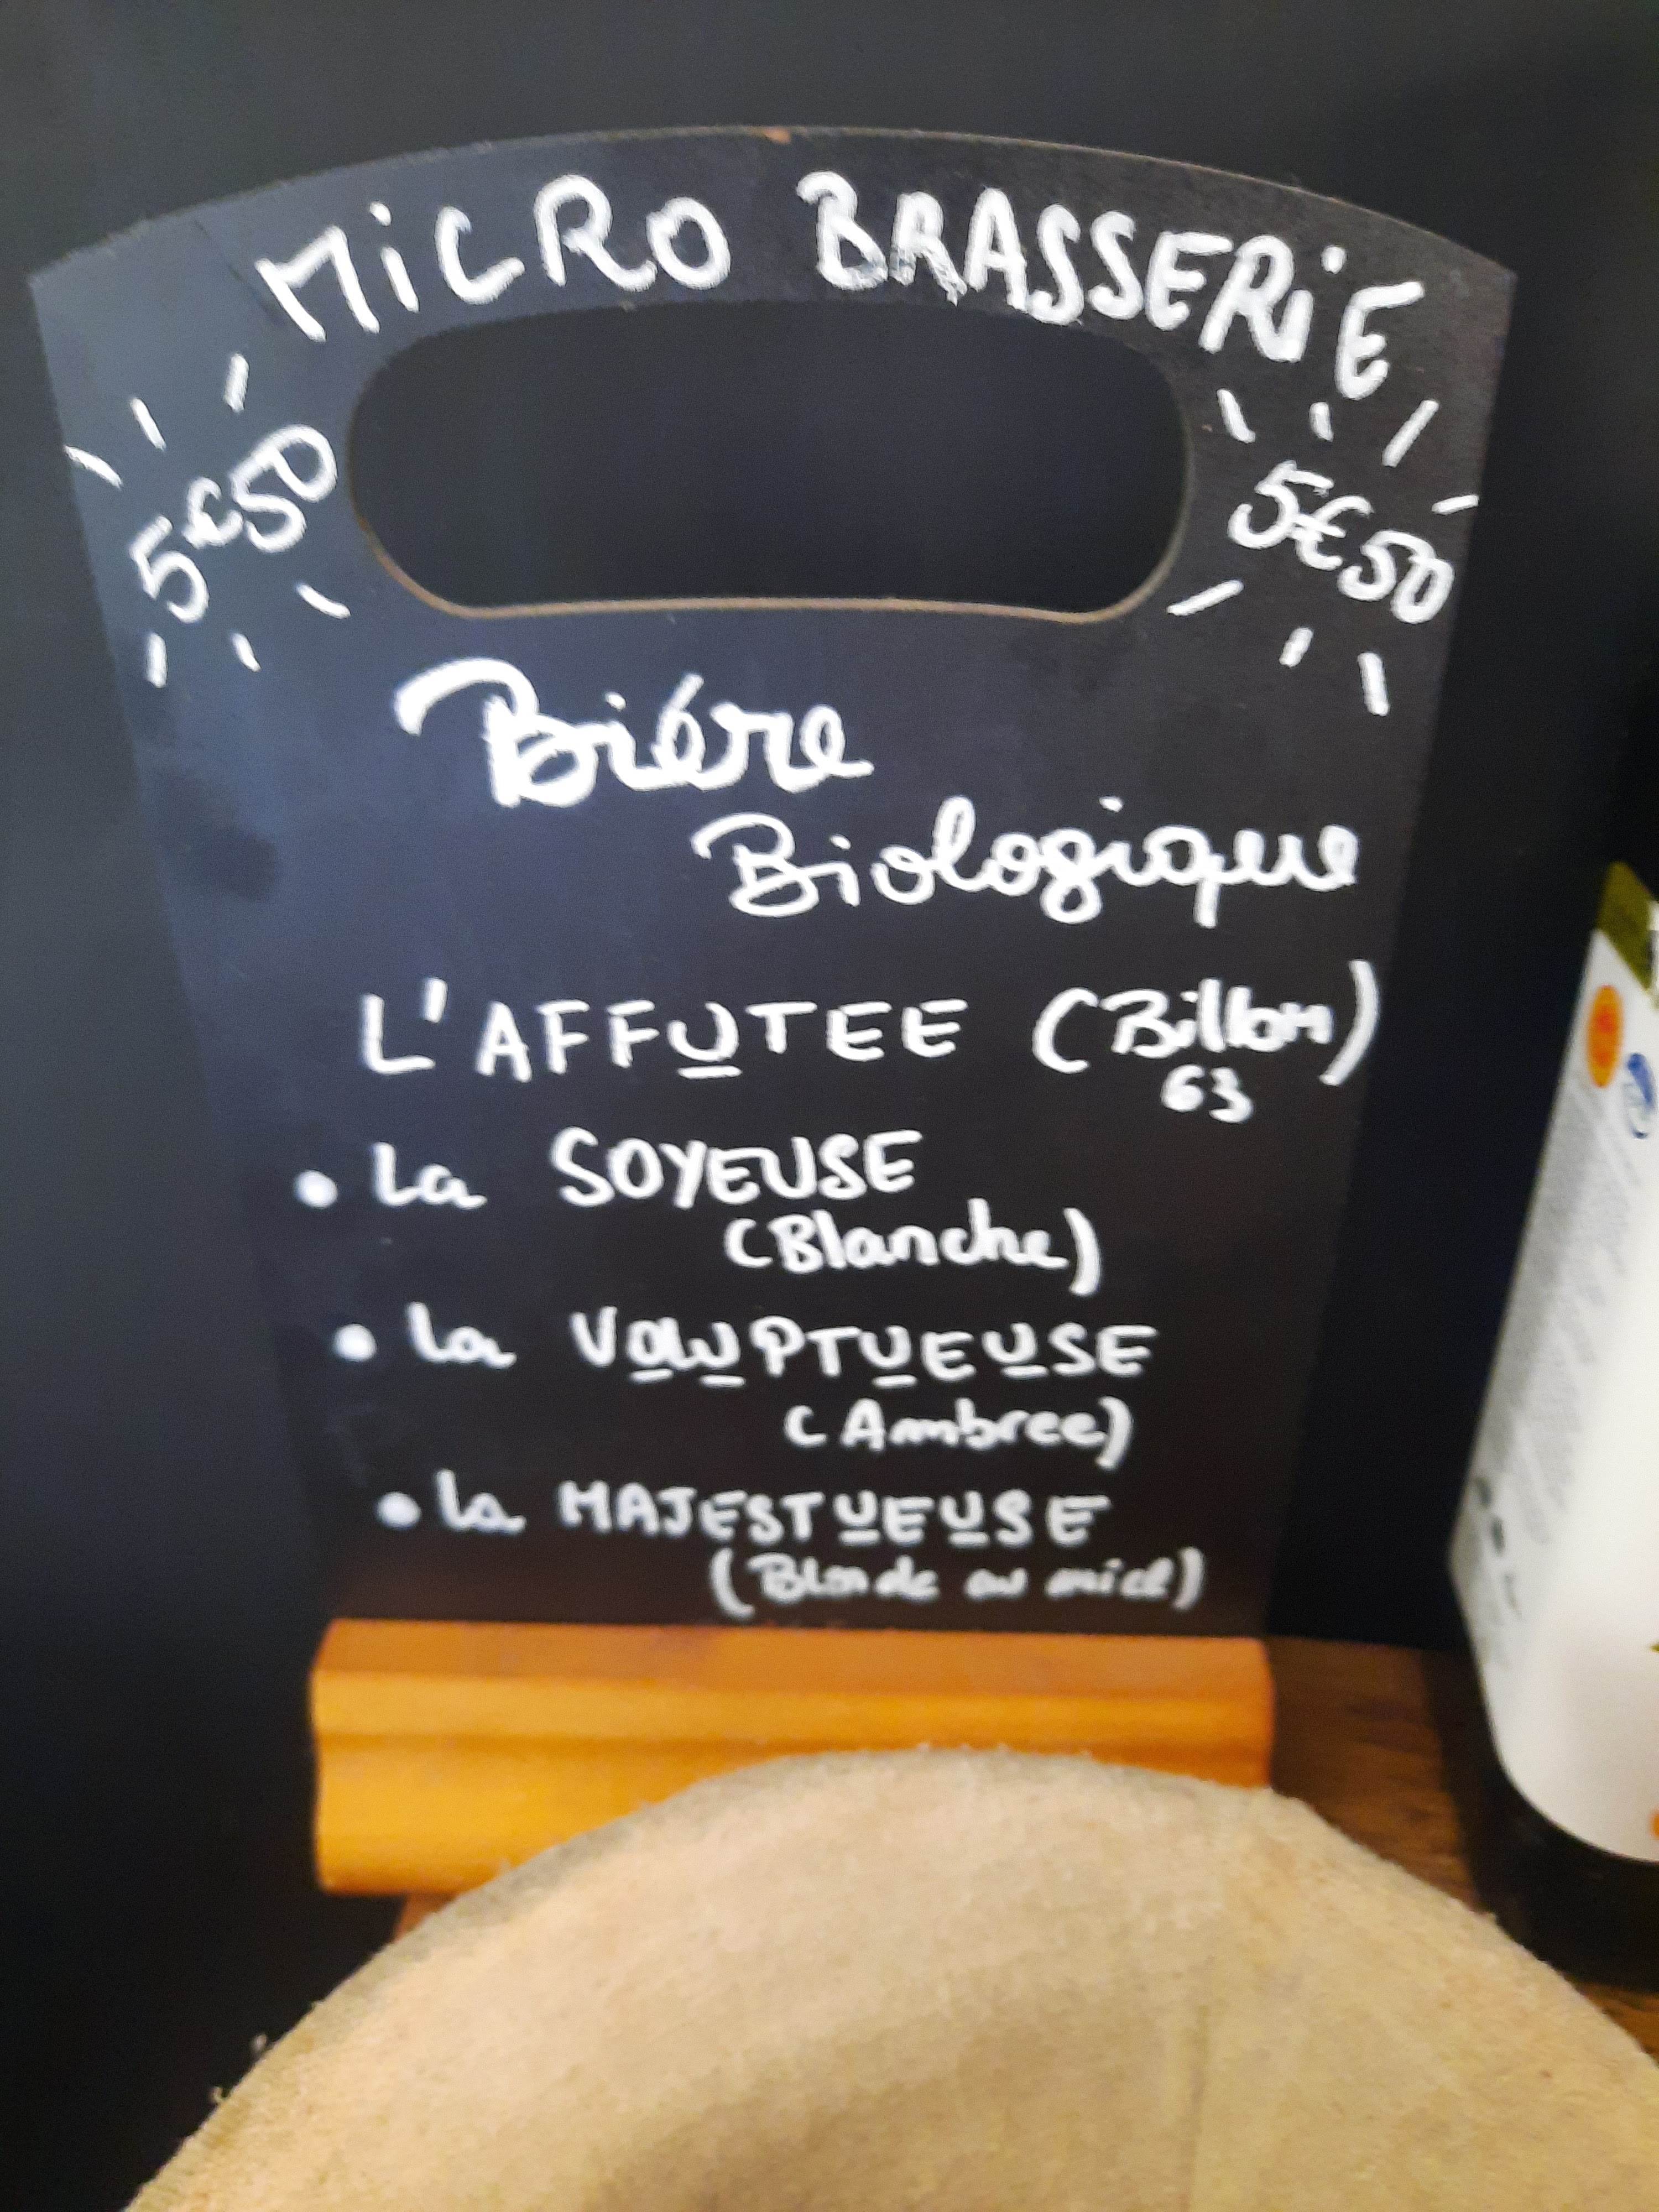 MiCRO BRASSERiE
5€50
5€50
Biére
Biologique
L'AFFUTEE (Billom)
63
• La SOYEUSE
(Blanche)
• La VOLUPTUEUSE
(Ambree)
• La MAJESTUEUSE
(Blonde au miel)